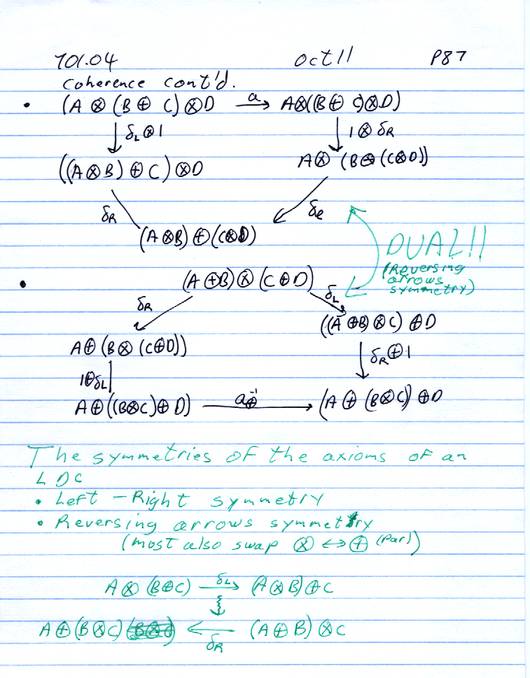 701.04 Oct 11 P87
Coherence cont'd.
• (A ⊗ (B ⊕ C) ⊗ D →a A ⊗ ((B ⊕ C) ⊗ D)
↓ δL ⊗ 1 ↓ 1 ⊗ δR
((A ⊗ B) ⊕ C) ⊗ D A ⊗ (B ⊕ (C ⊗ D))
δR δL
(A ⊗ B) ⊕ (C ⊗ D)
DUAL!!
(Reversing
arrows
symmetry)
• (A ⊕ B) ⊗ (C ⊕ D)
δR δL
((A ⊕ B) ⊗ C) ⊕ D
A ⊕ (B ⊗ (C ⊕ D)) ↓ δR ⊕ 1
1 ⊕ δL ↓
A ⊕ ((B ⊗ C) ⊕ D) →a⊕⁻¹ (A ⊕ (B ⊗ C)) ⊕ D
The symmetries of the axioms of an
LDC
• Left - Right symmetry
• Reversing arrows symmetry
(most also swap ⊗ ↔ ⊕ (Par))
A ⊗ (B ⊕ C) →δL (A ⊗ B) ⊕ C
A ⊕ (B ⊗ C) ←δR (A ⊕ B) ⊗ C